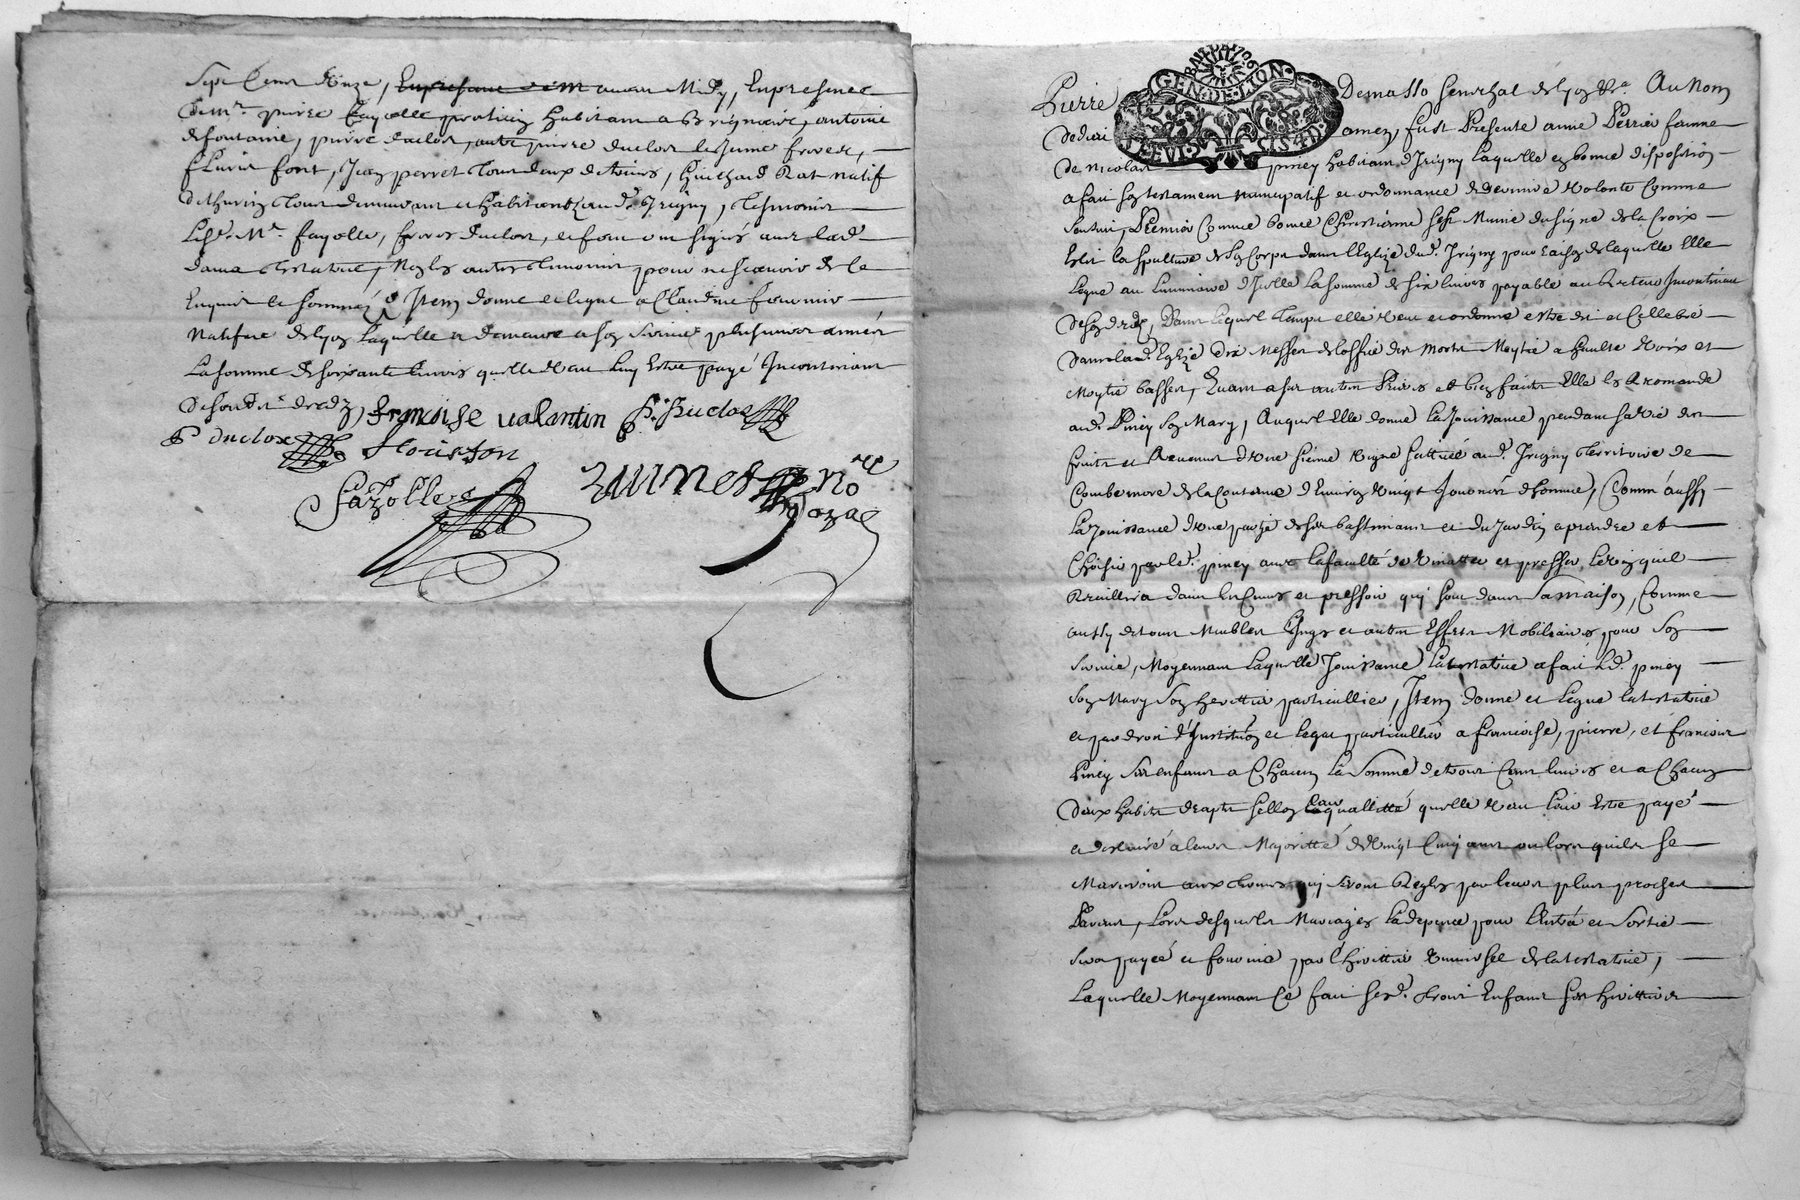 Sept Cents Unze, Enpresance de m avant Midy, Enpresence
de mr. pierre fayolle praticien habitant a Brignaix, antoine
defontaine, pierre duclos, autre pierre duclos le Jeune freres,
fleuris font, Jean perret tous deux
tous demeurant et habitantz aud. Irigny, tesmoins
Lesd. Mr. fayolle, freres duclos, et font on signés avec lad.
dame testatrice, Non les autres tesmoins pour ne sçavoir de ce
Enquis et sommés Item donne et legue a Claudine fournie
Natifve de lyon laquelle a demeuré a son service plusieurs années
La somme de soixante livres quelle veut luy estre payé Incontinant
de son decedz, françoise valantin P. Duclos
P duclos flouiston
fazolle no.re
Royal
GEN.DE.LION.
Pierre Demasso Senechal de lyon &a. Au Nom
de dieu amen, fust Presente anne Perrier femme
de nicolas piney habitant d'Irigny Laquelle en bonne disposition
a fait son testament nuncupatif et ordonnance de derniere volonté Comme
sensuit, Premier Comme bonne Chrestienne sest Munie du signe de la Croix
Eslit la sepulture de son Corps dans l'Eglize dud. Irigny pour raison de laquelle Elle
legue au luminaire d'Icelle la somme de six livres payable au Recteur Incontinant
de son decedz, Dans lequel temps elle veut et ordonne estre dit et Cellebré
dans lad. Eglize dix Messes de loffice des Morts Moytié a haulte Voix et
Moytié basses, Quant a ses autres Prieres et bien faitz Elle les Recomande
aud. Piney son Mary, Auquel Elle donne la Jouissance pendant sa vie des
fruits et Revenus d'une sienne Vigne scittuée aud. Irigny territoire de
Combemore de la Contenue d'Environ vingt Journées d'homme, Comm'aussi
la Jouissance d'une partie de ses bastimants et du Jardin a prendre et
Choisir par led. piney avec la faculté de et presser le vin quil
Recuillira dans les Cuves et pressoir qui sont dans sa maison, Comme
aussy de tous Meubles linges et autres Effets Mobiliaires pour son
service, Moyennant laquelle Jouissance la testatrice a fait led. piney
son Mary son heritier particullier, Item donne et legue la testatrice
et par droit d'Institution et legat particullier a françoise, pierre, et françois
Piney ses enfants a Chacun la somme de trois Cent livres et a Chacun
deux habits drapts sellon leur quallitté quelle veut leur estre payé
et delivré a leur Majoritté de vingt Cinq ans ou lors quils se
Mariront aux termes qui seront Reglez par leurs plus proches
Parents, Lors desquels Mariages la depence pour l'Entrée et sortie
sera payée et fournie par l'heritier universel de la testatrice,
Laquelle Moyennant Ce fait sesd. trois Enfants ses heritiers